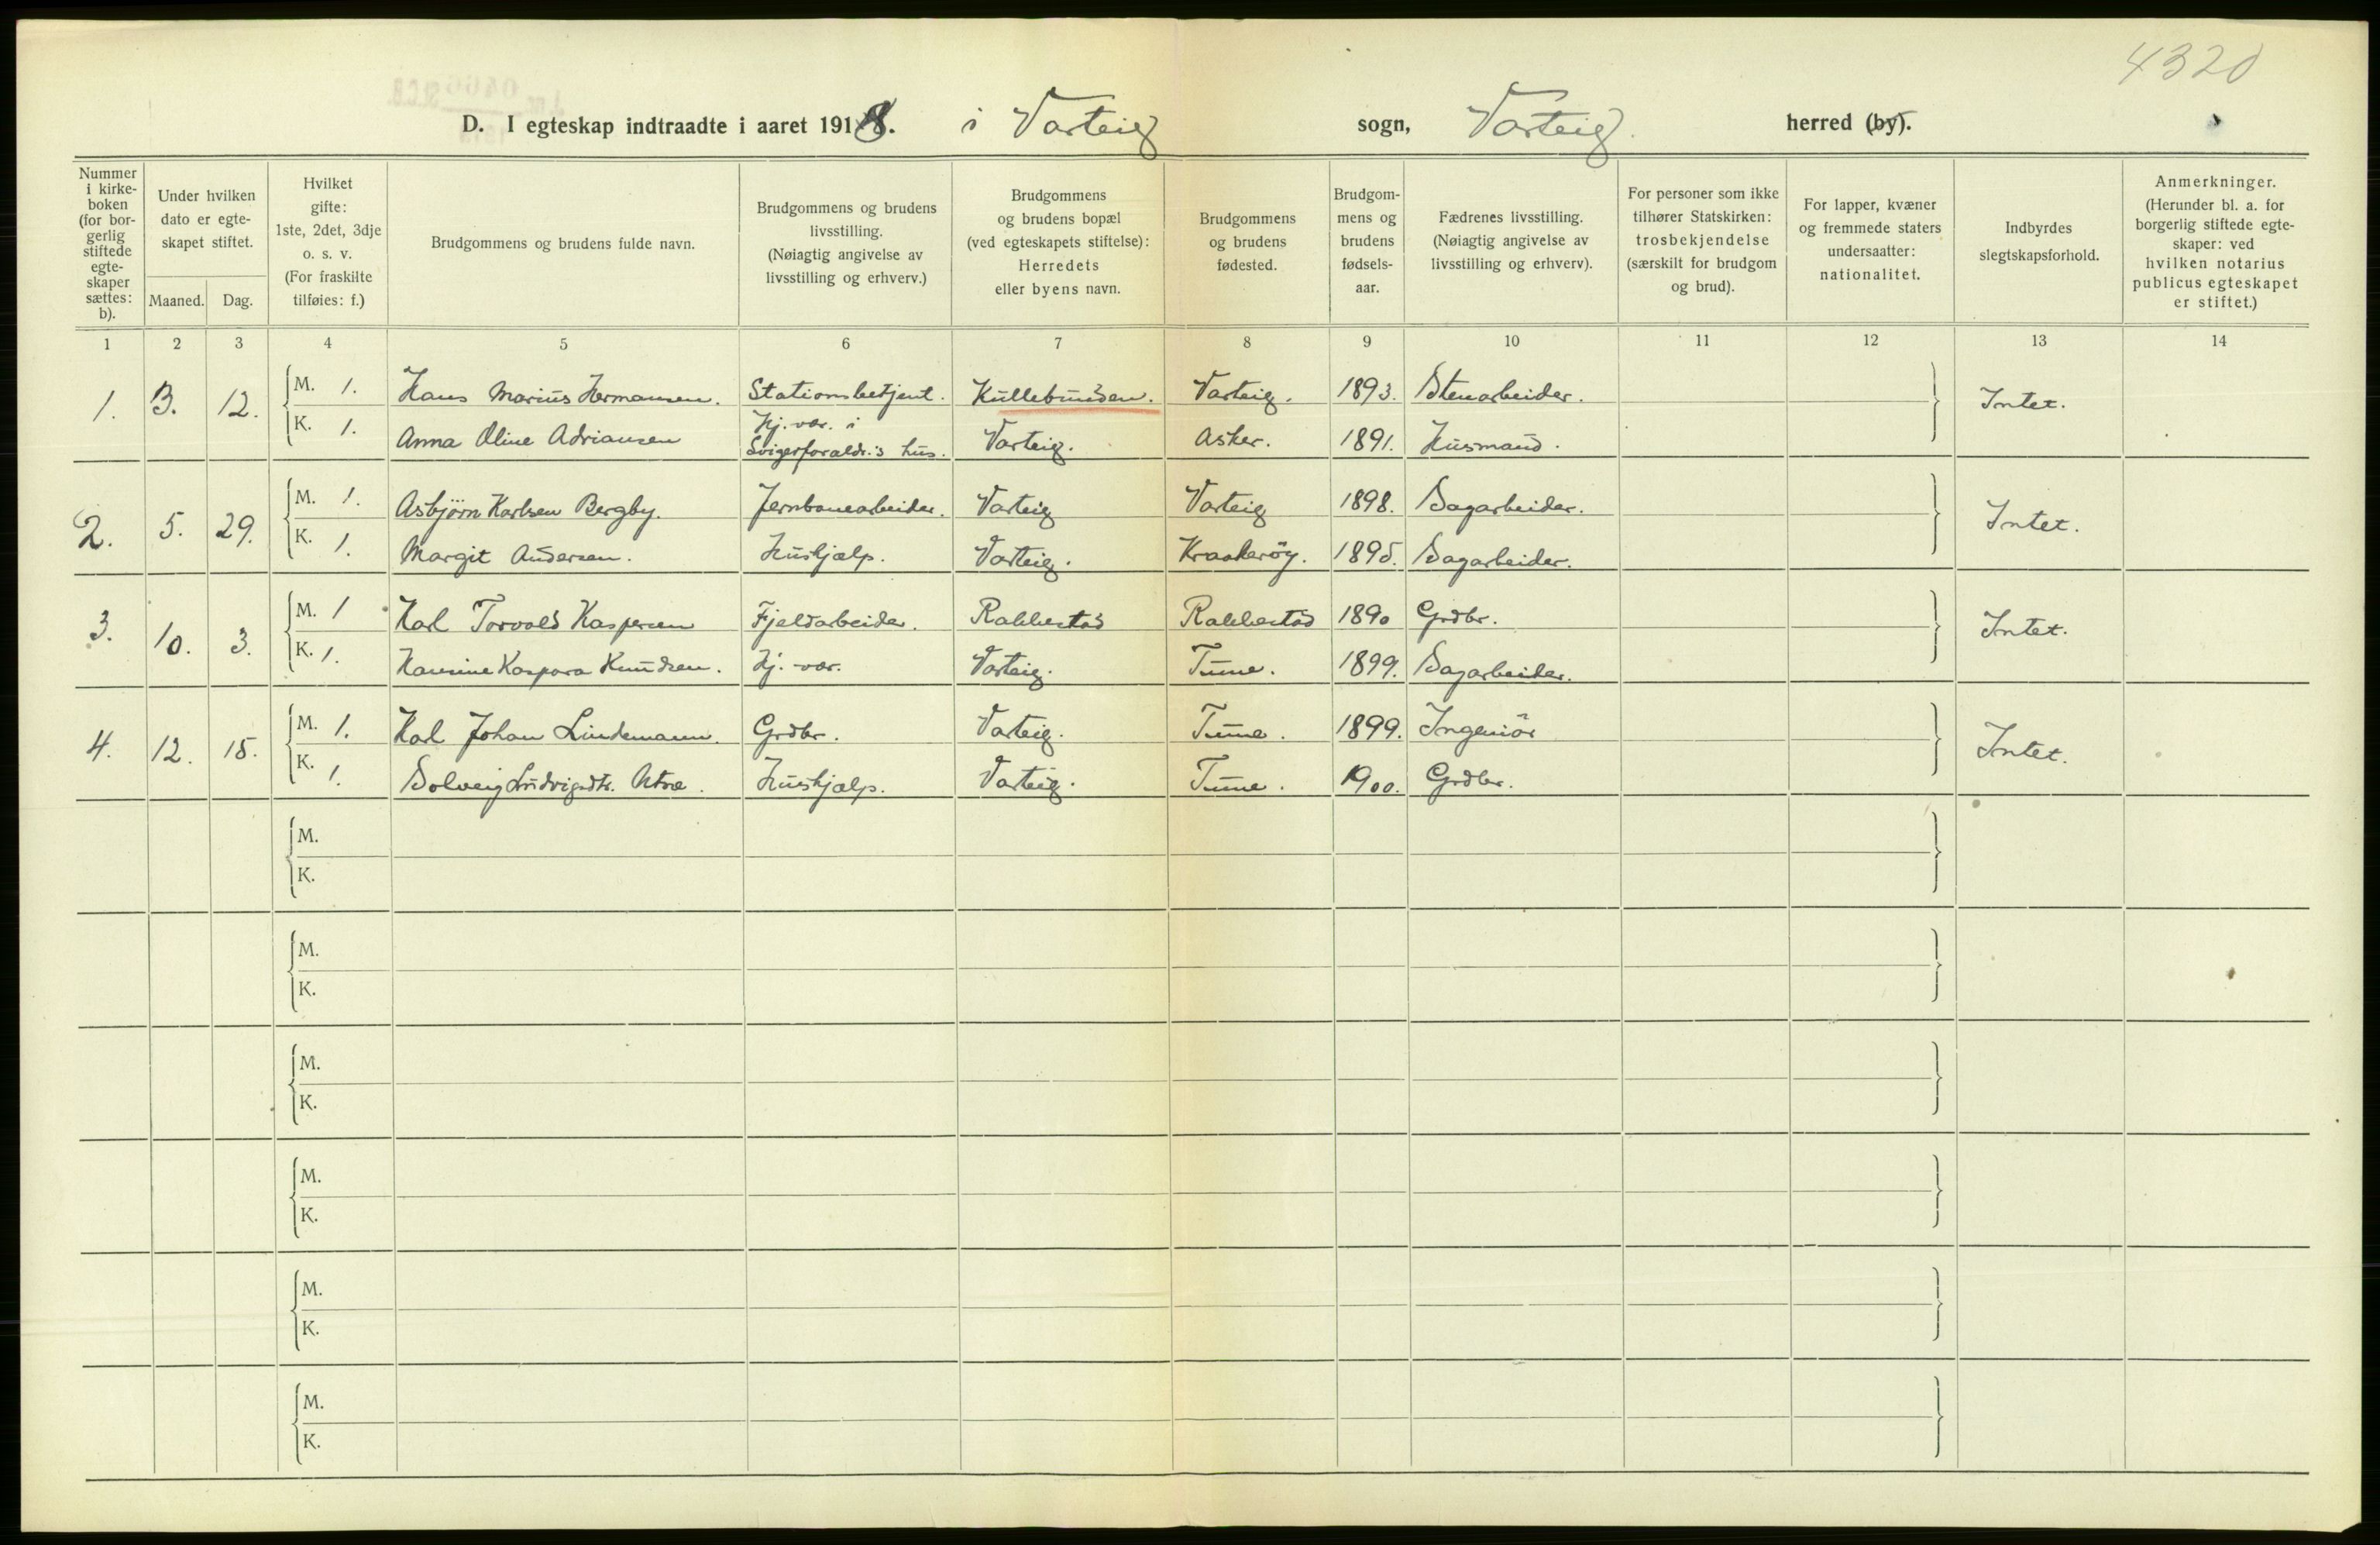 4320
D. I egteskap indtraadte i aaret 1918. i Varteig sogn, Varteig. herred (by).
Nummer i kirkeboken (for borgerlig stiftede egteskaper sættes: b).
Under hvilken dato er egteskapet stiftet.
Maaned. Dag.
Hvilket gifte: 1ste, 2det, 3dje o. s. v. (For fraskilte tilføies: f.)
Brudgommens og brudens fulde navn.
Brudgommens og brudens livsstilling. (Nøiagtig angivelse av livsstilling og erhverv.)
Brudgommens og brudens bopæl (ved egteskapets stiftelse): Herredets eller byens navn.
Brudgommens og brudens fødested.
Brudgommens og brudens fødselsaar.
Fædrenes livsstilling. (Nøiagtig angivelse av livsstilling og erhverv).
For personer som ikke tilhører Statskirken: trosbekjendelse (særskilt for brudgom og brud).
For lapper, kvæner og fremmede staters undersaatter: nationalitet.
Indbyrdes slegtskapsforhold.
Anmerkninger. (Herunder bl. a. for borgerlig stiftede egteskaper: ved hvilken notarius publicus egteskapet er stiftet.)
1 2 3 4 5 6 7 8 9 10 11 12 13 14
1. 3. 12. M. 1. Hans Marius Hermansen. Stationsbetjent. Kullebunden. Varteig. 1893. Stenarbeider. Intet.
K. 1. Anna Oline Adriansen Hj. vær. i Svigerforældr.'s hus. Varteig. Asker. 1891. Husmand.
2. 5. 29. M. 1. Asbjörn Karlsen Bergby. Jernbanearbeider. Varteig Varteig 1898. Sagarbeider. Intet.
K. 1. Margit Andersen. Hushjælp. Varteig. Kraakeröy. 1895. Sagarbeider.
3. 10. 3. M. 1 Karl Torvald Kaspersen Fjeldarbeider. Rakkestad Rakkestad 1890 Grdbr. Intet.
K. 1. Hansine Kaspara Knudsen. Hj. vær. Varteig. Tune. 1899. Sagarbeider.
4. 12. 15. M. 1. Karl Johan Lindemann. Grdbr. Varteig. Tune. 1899. Ingeniör Intet.
K. 1. Solveig Ludvigsdtr. Hushjælp. Varteig. Tune. 1900. Grdbr.
M.
K.
M.
K.
M.
K.
M.
K.
M.
K.
M.
K.